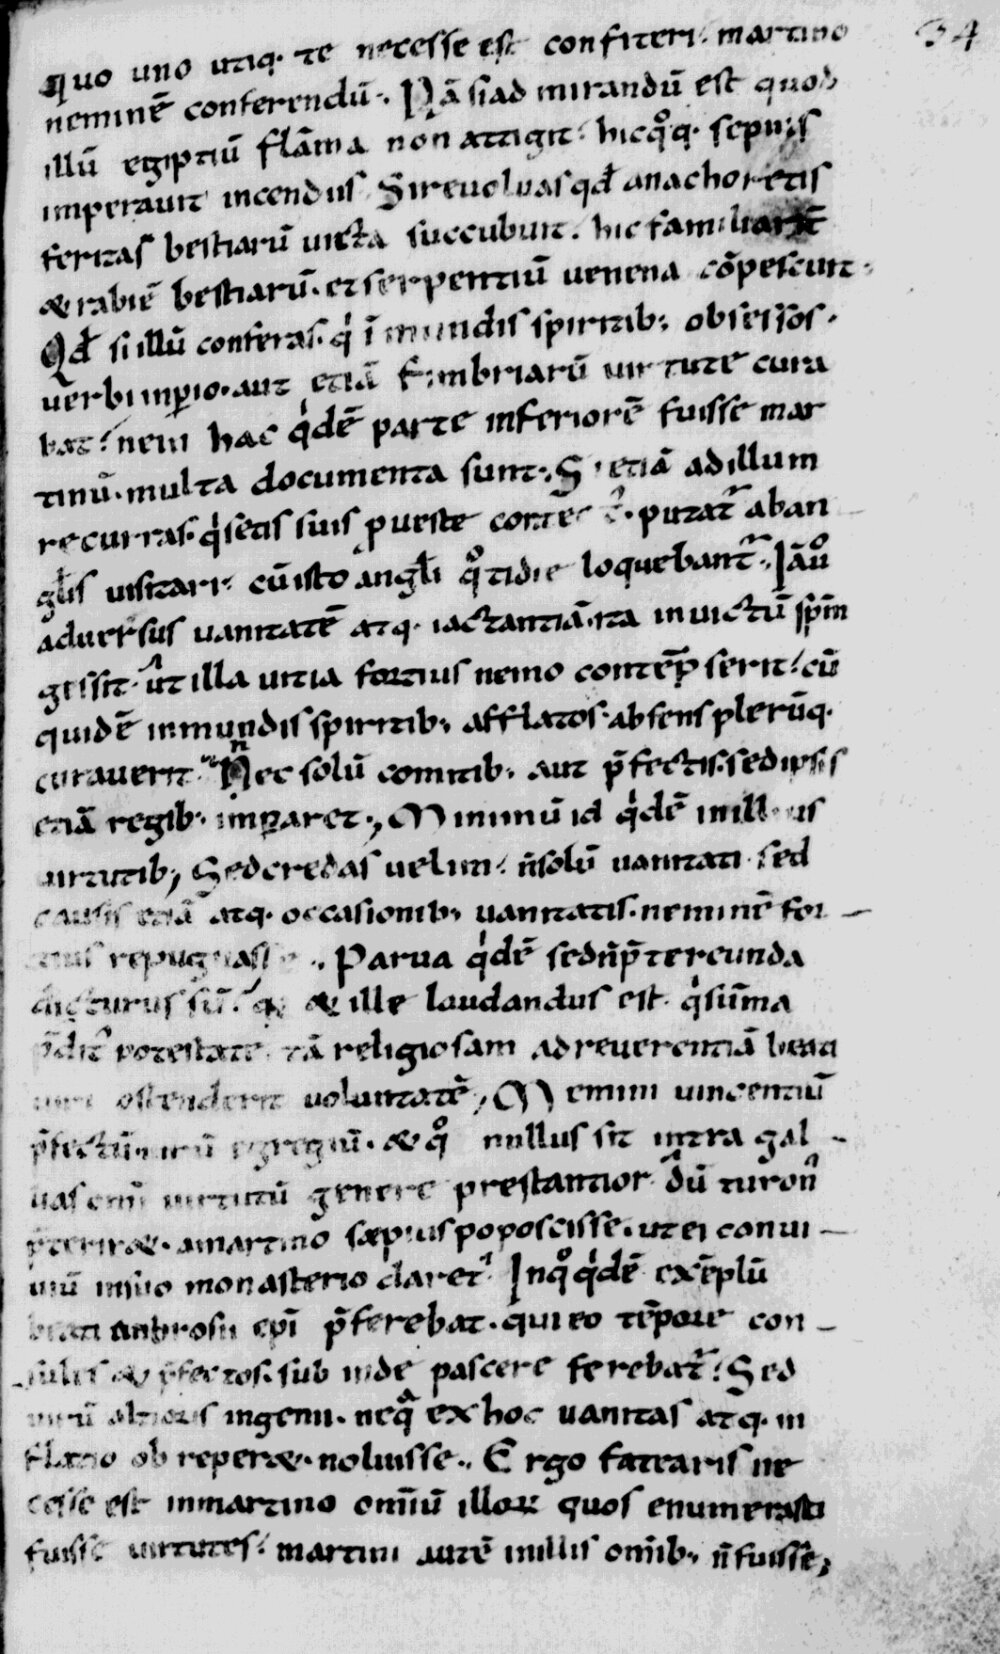 34
quo uno utiq· te necesse est confiteri· martino
neminē conferendū·. Nā si ad mirandū est quod
illū egiptiū flāma non attigit· hic qͦq· sepius
imperauit incendiis· Si reuoluas qd̄ anachoretis
feritas bestiarū uicta succubuit· hic familiarit̄
& rabiē bestiarū· et serpentiū uenena cōpescuit·
Qd̄ si illū conferas· qͥ īmundis spiritib; obsessos·
uerbi inp̄io· aut etiā fimbriarū uirtute cura
bat· nem hac qͥdē parte inferiorē fuisse mar
tinū· multa documenta sunt·. Si etiā ad illum
recurras· qͥ setis suis ꝓ ueste putat̄ aban
gl̄is uisitari· cū isto angl̄i qͦtidie loquebant̄·. Iāuͦ
aduersus uanitatē atq· iactantiā· ita inuictū sp̄m
gessit· ut illa uitia fortius nemo contēpserit· cū
quidē inmundis spiritib; afflatos· absens plerūq·
curauerit· Nec solū comitib; aut p̄fectis· sed ipsis
etiā regib; imꝑaret·, Minimū id qͥdē in illius
uirtutib; Sed credas uelim· n̄ solū uanitati· sed
causis etiā atq· occasionib; uanitatis· neminē for
tius repugnasse·. Parua qͥdē sed n̄ p̄tereunda
dicturus sū· & ille laudandus est· qͥ sūma
p̄dit potestate· tā religiosam ad reuerentiā beati
uiri ostenderit uoluntatē, Memini uincentiū
p̄fectū· uirū egregiū· & qͦ nullus sit intra gal
uas omī uirtutū genere prestantior· dū turon̄
p̄teriræ· a martino sæpius poposcisse· ut ei conui
uiū in suo monasterio daret· In qͦ qͥdē exēplū
beati ambrosii ep̄i p̄ferebat· qui eo tēpore con
sules & p̄fectos· sub inde pascere ferebat̄· Sed
uirū altioris ingenii· neq̄ ex hoc uanitas atq· in
flatio ob reperæ· noluisse·. Ergo fatearis ne
cesse est in martino omīū illoꝝ quos enumerasti
fuisse uirtutes· martini autē in illis omīb; n̄ fuisse;